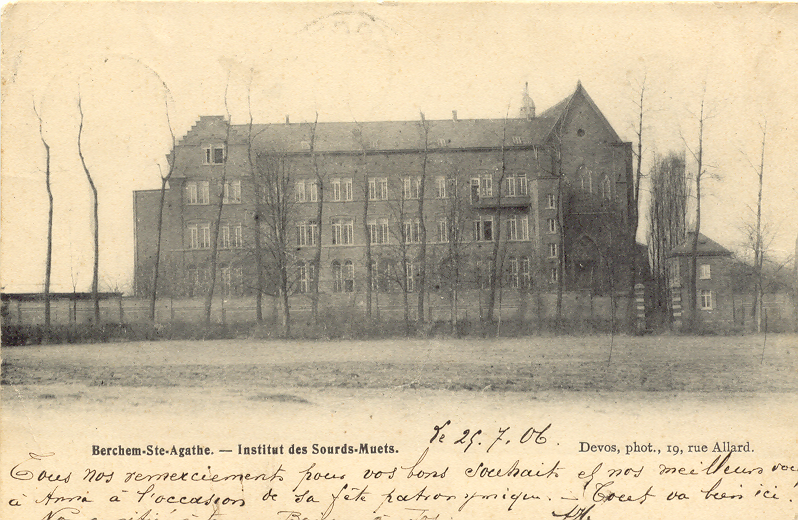 Le 25.7.06.
Berchem-Ste-Agathe. — Institut des Sourds-Muets.
Devos, phot., 19, rue Allard.
Tous nos remerciements pour vos bons souhaits et nos meilleurs
à Anna à l'occasion de sa fête patronymique. — Tout va bien ici.